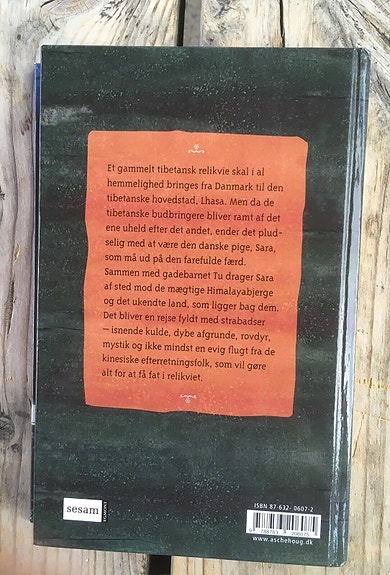 Et gammelt tibetansk relikvie skal i al
hemmelighed bringes fra Danmark til den
tibetanske hovedstad, Lhasa. Men da de
tibetanske budbringere bliver ramt af det
ene uheld efter det andet, ender det plud-
selig med at være den danske pige, Sara,
som må ud på den farefulde færd.
Sammen med gadebarnet Tu drager Sara
af sted mod de mægtige Himalayabjerge
og det ukendte land, som ligger bag dem.
Det bliver en rejse fyldt med strabadser
– isnende kulde, dybe afgrunde, rovdyr,
mystik og ikke mindst en evig flugt fra de
kinesiske efterretningsfolk, som vil gøre
alt for at få fat i relikviet.
sesam
EGMONT
ISBN 87-632-0607-2
9 788763 206075
www.aschehoug.dk